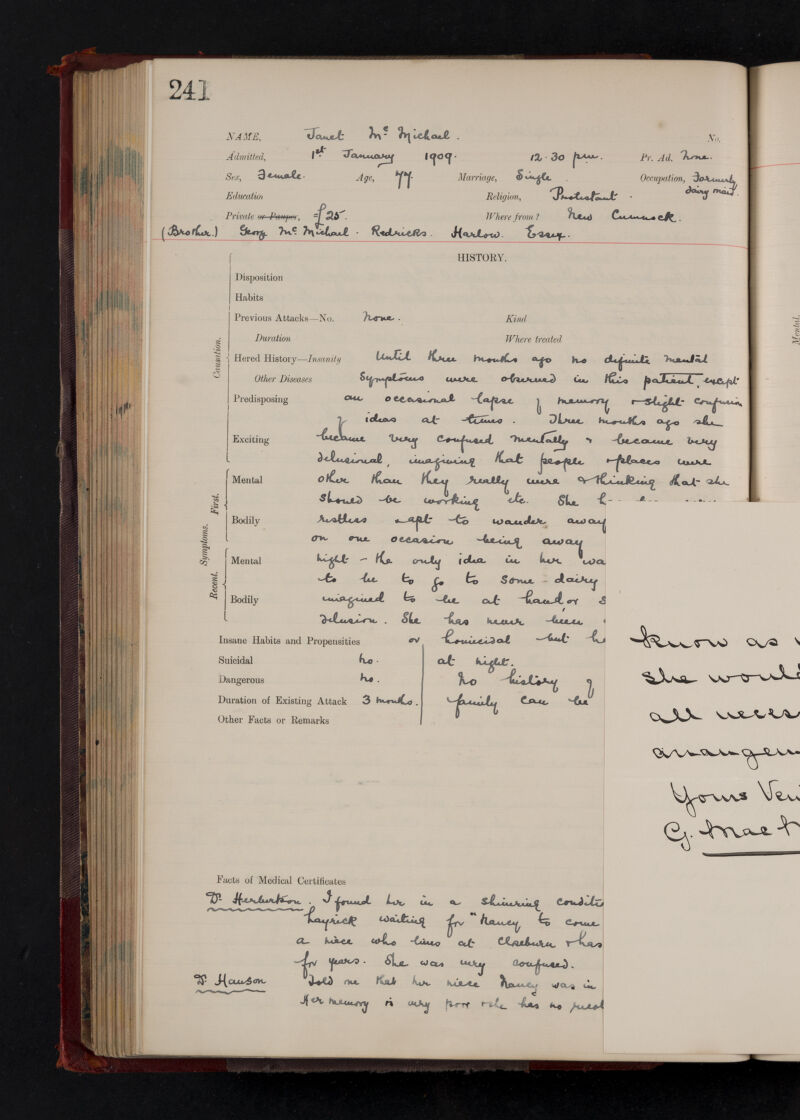 241
NAME, Janet Mc Michael. No.
Admitted, 1st January 1909. 12.30 p.m. Pr. Ad. None.
Sex, Female. Age, 77 Marriage, Single. Occupation, Formerly dairy maid.
Education Religion, Protestant.
Private or Pauper, £25. Where from? New Cumnock.
(Brother.) George Mc Michael. Redricks. Harlow. Essex.
HISTORY.
Disposition
Habits
Previous Attacks—No. None. Kind
Duration Where treated
Causation.
Hered History—Insanity Until three months ago no definite mental
Other Diseases Symptoms were observed in this patient, except
Predisposing an occasional lapse of memory & slight confusion
of ideas at times. Three months ago she
Exciting became very confused mentally & became very
delusional, imagining that people & places were
Mental other than they really were & thinking that she
First.
should be working etc. She
Bodily restless & apt to wander away
on one occasion being away
Symptoms.
Mental night - the only idea in her wa
to be to go to some dairy
Recent.
Bodily imagined to be at hand or
delusion. She has never been
Insane Habits and Propensities or homicidal but
Suicidal No. at night.
Dangerous No. No history of
Duration of Existing Attack 3 months. family can be
Other Facts or Remarks
know as
she would
all
arrangem
Yours Ver
G. Mac
Facts of Medical Certificates
Dr. Herbertson. I found her in a shivering conditi
hayrick waiting for "Nancy to come
a niece who lives at Closeburn & has
for years. She was very confused.
Dr Hanson Told me that her niece Nancy was in
Her memory is very poor & she has no
Mental.